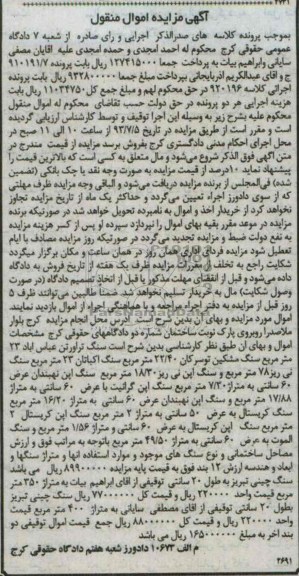 ۲۷۳۱
آگهی مزایده اموال منقول
بموجب پرونده کلاسه های صدرالذکر اجرایی و رای صادره از شعبه ۷ دادگاه
عمومی حقوقی کرج محکوم له احمد امجدی و حمده امجدی علیه آقایان مصفی
سایانی وابراهیم بیات به پرداخت جمعا ۱۲۷۴۱۵۰۰۰ ریال بابت پرونده ۹۱۰۱۹۱/۷
ج و اقای عبدالکریم اذربایجانی پرداخت مبلغ جمعا ۹۳۲۸۰۰۰۰ ریال بابت پرونده
اجرایی کلاسه ۹۲۰۱۹۶ در حق محکوم لهم و مبلغ جمع کل ۱۱۰۳۴۷۵۰ ریال بابت
هزینه اجرایی هر دو پرونده در حق دولت حسب تقاضای محکوم له اموال منقول
محکوم علیه بشرح زیر به وسیله این اجرا توقیف و توسط کارشناس ارزیابی گردیده
است و مقرر است از طریق مزایده در تاریخ ۹۳/۷/۵ از ساعت ۱۰ الی ۱۱ صبح در
محل اجرای احکام مدنی دادگستری کرج بفروش برسد مزایده از قیمت مندرج در
متن آگهی فوق الذکر شروع می‌شود و مال متعلق به کسی است که بالاترین قیمت را
پیشنهاد نماید ۱۰درصد از قیمت مزایده به صورت وجه نقد یا چک بانکی (تضمین
شده) فی‌المجلس از برنده مزایده دریافت می‌شود و الباقی وجه مزایده ظرف مهلتی
که از سوی دادورز اجراء تعیین می‌گردد و حداکثر یک ماه از تاریخ مزایده تجاوز
نخواهد کرد از خریدار اخذ و اموال به نامبرده تحویل خواهد شد در صورتیکه برنده
مزایده در موعد مقرر بقیه بهای اموال را نپردازد سپرده او پس از کسر هزینه مزایده
به نفع دولت ضبط و مزایده تجدید می‌گردد در صورتیکه روز مزایده مصادف با ایام
تعطیل شود مزایده فردای اداری همان روز در همان ساعت و مکان برگزار میگردد
شکایت راجع به تخلف از مقررات مزایده ظرف یک هفته از تاریخ فروش به دادگاه
داده می‌شود و قبل از انقضای مهلت مذکور یا قبل از اتخاذ تصمیم دادگاه (در صورت
وصول شکایت) مال به خریدار تسلیم نخواهد شد. ضمنا طالبین می‌توانند ظرف ۵
روز قبل از مزایده به دفتر اجراء مراجعه و با هماهنگی اجراء از اموال بازدید نمایند.
اموال مورد مزایده و بهای آن بدین شرح است: ادرس محل انجام مزایده کرج بلوار
ملاصدرا روبروی پارک نوبت ساختمان شماره دو دادگاههای حقوقی کرج مشخصات
اموال و بهای ان طبق نظر کارشناسی بدین شرح است سنگ تراورتن عباس اباد ۲۳
متر مربع سنگ مشکین توسرکان ۲۲/۴۰ متر مربع سنگ اکباتان ۲۳ متر مربع سنگ
نی ریز۷۸ متر مربع و سنگ اپن نی ریز ۱۸/۳۰ متر مربع سنگ اپن نهبندان عرض
۶۰ سانتی به متراژ ۷/۲۰ متر مربع سنگ اپن گرانیت با عرض ۶۰ سانتی به متراژ
۱۷/۸۸ متر مربع و سنگ اپن نهبندان عرض ۶۰ سانتی به متراژ ۱۶/۲۰ متر مربع
سنگ کریستال به عرض ۵۰ سانتی به متراژ ۲ متر مربع سنگ اپن کریستال ۲
متر مربع سنگ اپن کریستال به عرض ۶۰ سانتی و متراژ ۱/۵۶ متر مربع و سنگ
الموت به عرض ۶۰ سانتی به متراژ ۴۹/۵۰ متر مربع باتوجه به مراتب فوق و ارزش
مصاحل ساختمانی و نوع سنگ های موجود و موارد استفاده انها و متراژ سنگها و
ابعاد و هندسه ارزش ۱۲ بند فوق به قیمت پایه مزایده ۸۹۹۰۰۰۰۰ ریال می باشد
سنگ چینی تبریز به طول ۲۰ سانتی توقیفی از اقای ابراهیم بیات به متراژ ۳۵۰ متر
مربع قیمت واحد ۲۲۰۰۰۰ ریال و قیمت کل ۷۷۰۰۰۰۰۰ ریال سنگ چینی تبریز
بطول ۲۰ سانتی توقیفی از اقای مصطفی سایانی به متراژ ۴۰۰ متر مربع قیمت
واحد ۲۲۰۰۰۰ ریال و قیمت کل ۸۸۰۰۰۰۰۰ ریال جمع قیمت اموال توقیفی دو
بند اخر به مبلغ ۱۶۵۰۰۰۰۰۰ ریال می باشد
م الف ۱۰۶۷۳ دادورز شعبه هفتم دادگاه حقوقی کرج
۲۶۹۱